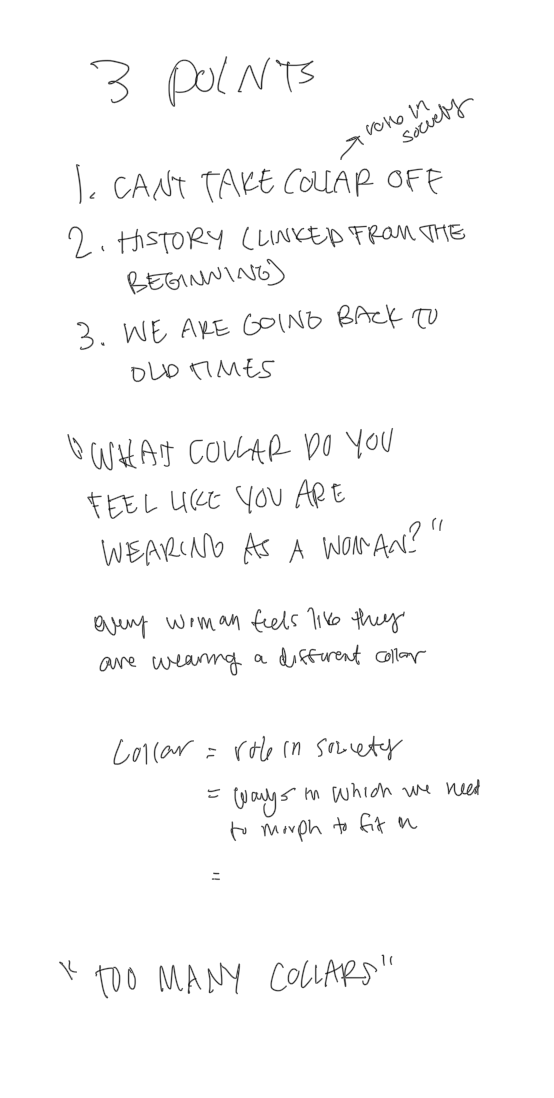 3 POINTS
role in
society
1. CANT TAKE COLLAR OFF
2. HISTORY (LINKED FROM THE
BEGINNING)
3. WE ARE GOING BACK TO
OLD TIMES
"WHAT COLLAR DO YOU
FEEL LIKE YOU ARE
WEARING AS A WOMAN?"
every woman feels like they
are wearing a different collar
Collar = role in society
= ways in which we need
to morph to fit in
=
"TOO MANY COLLARS"